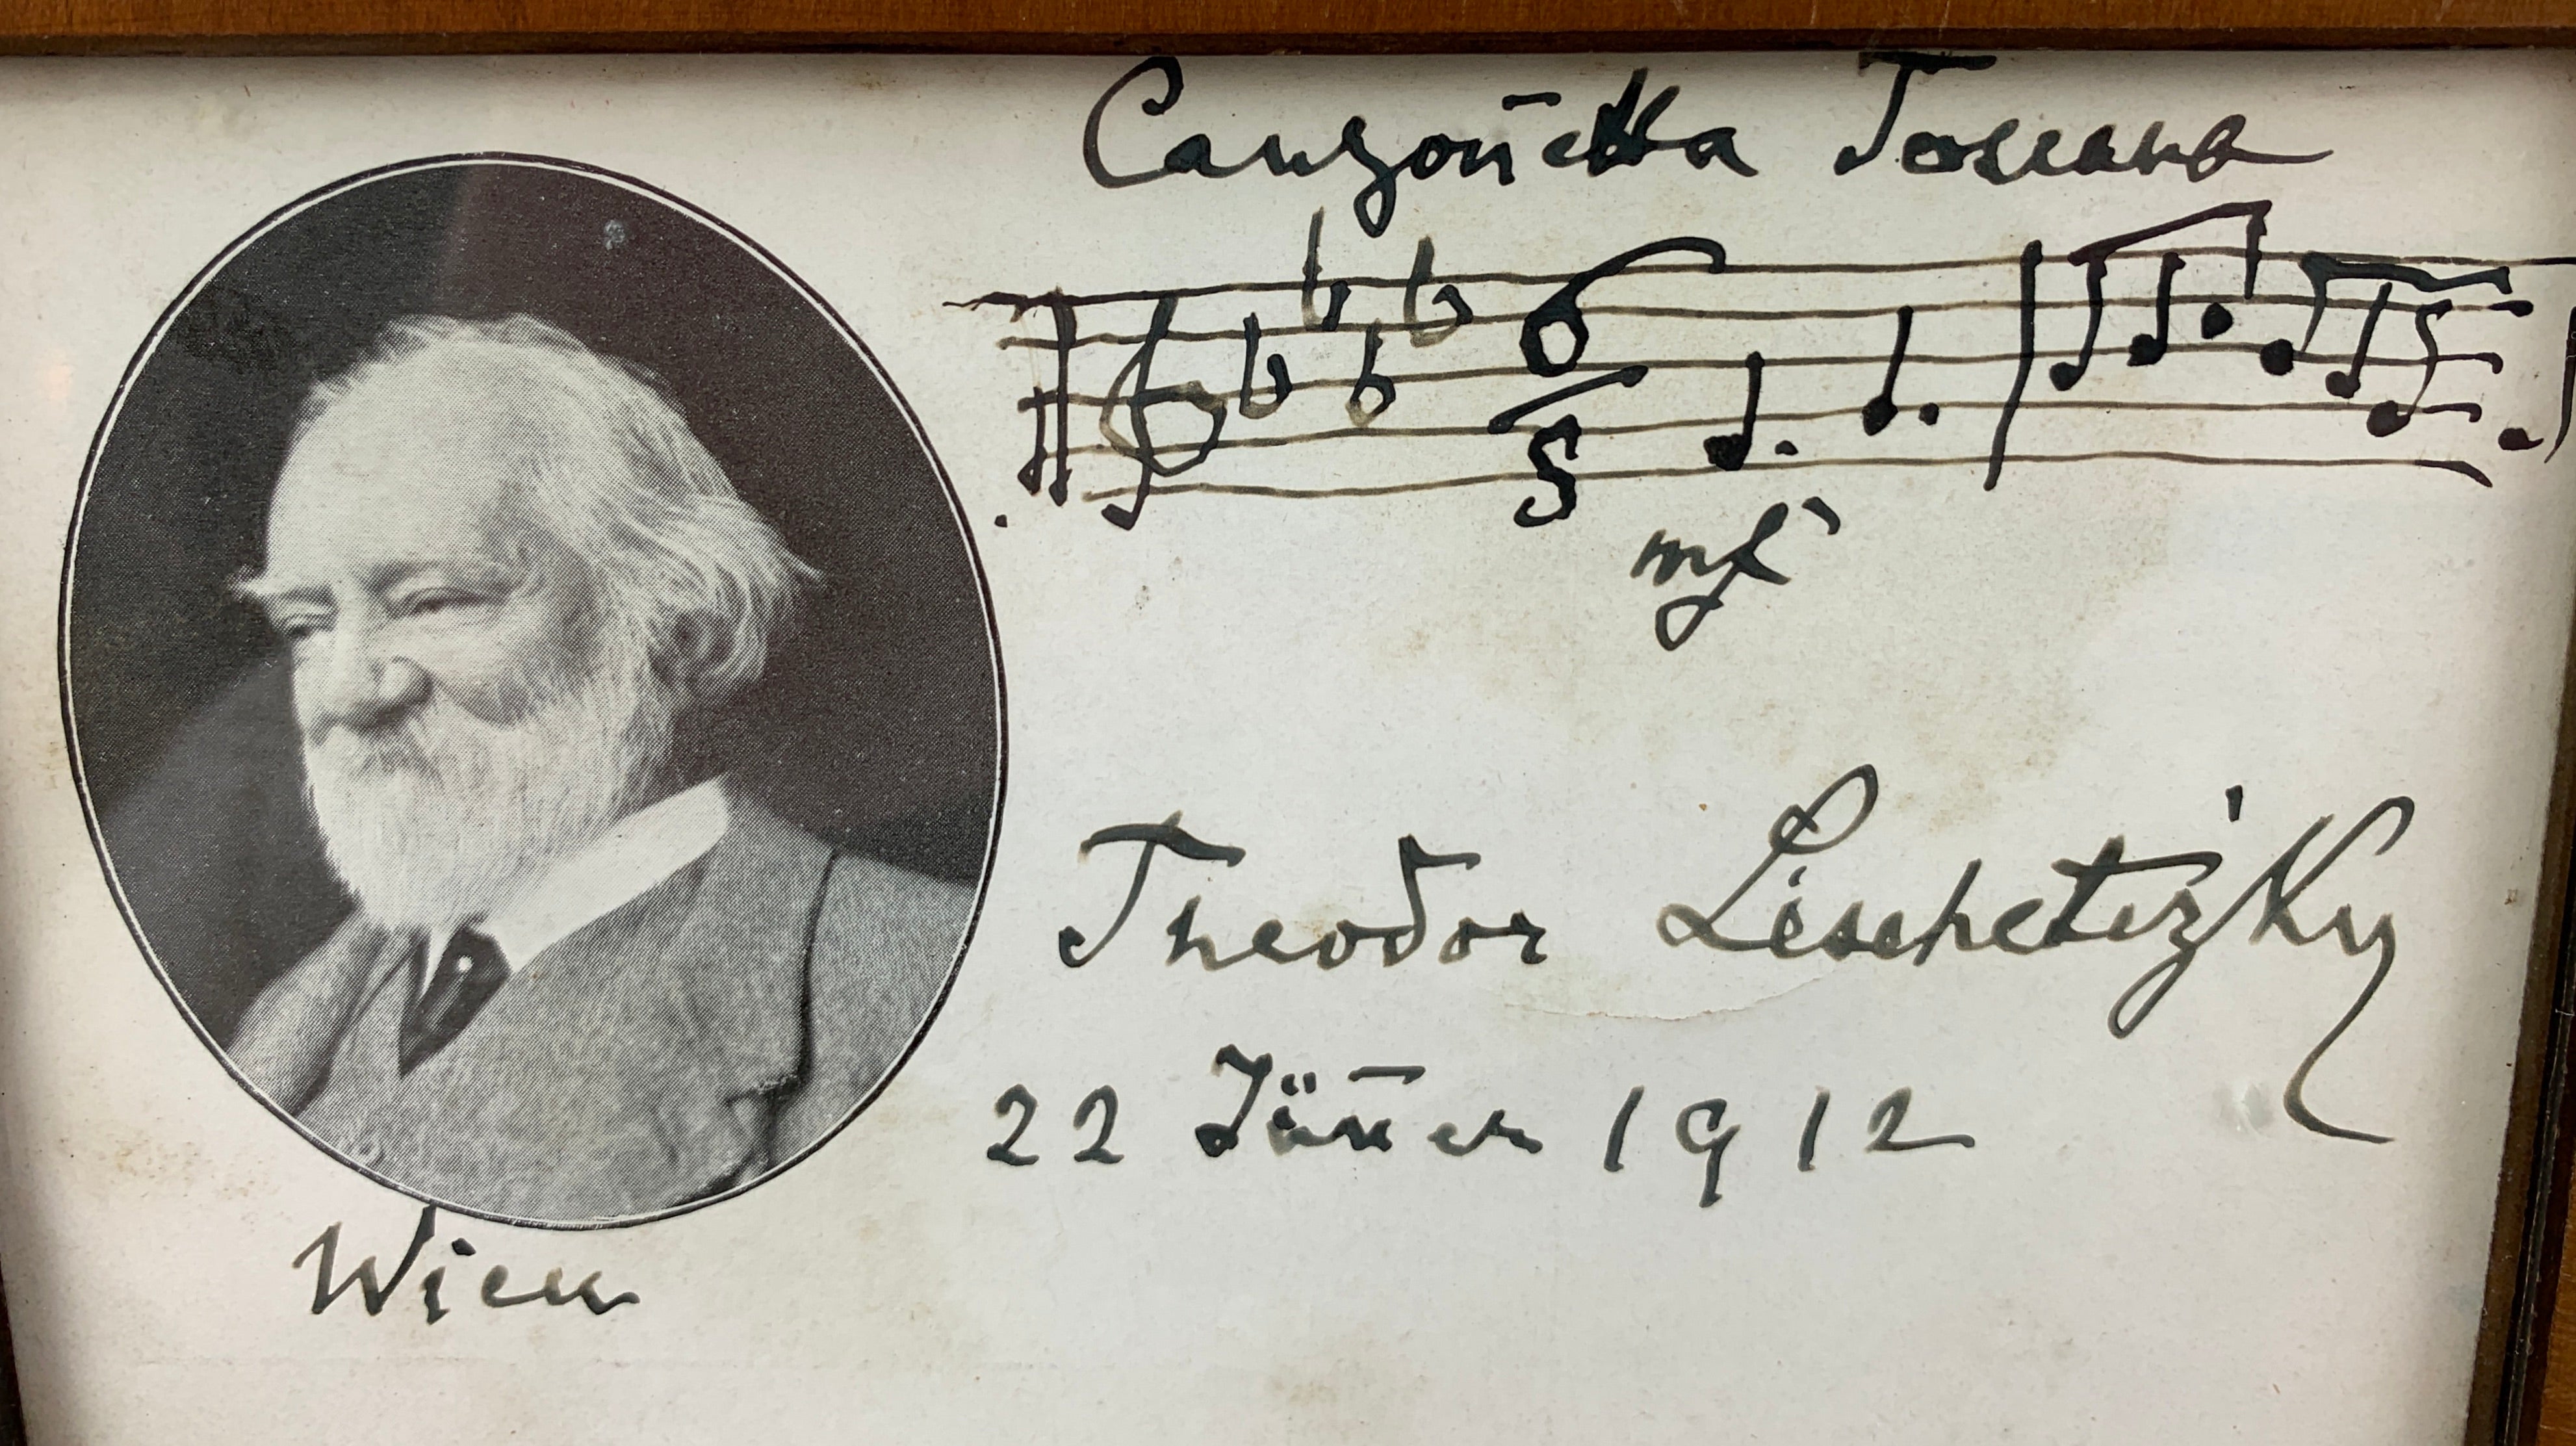 Canzon̄etta Toscana
6
8
mf
Theodor Leschetizky
22 Jän̄er 1912
Wien